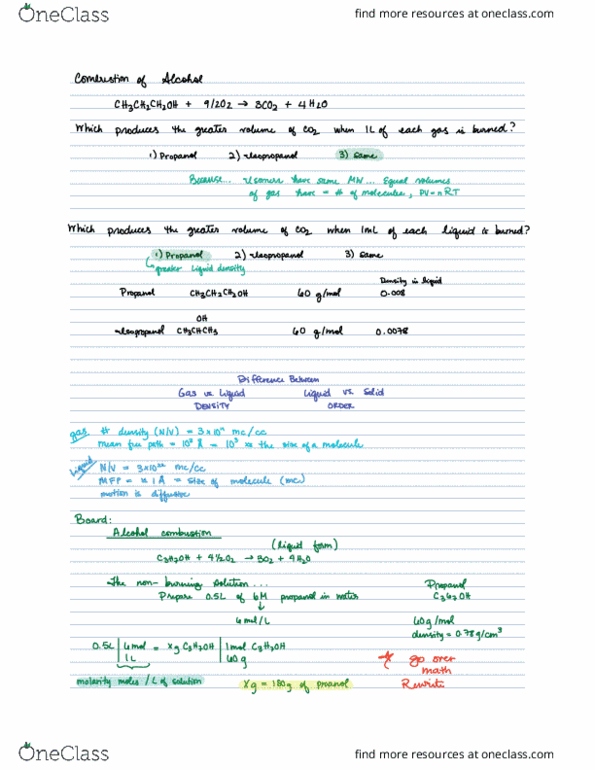 OneClass
find more resources at oneclass.com
Combustion of Alcohol
CH3CH2CH2OH + 9/2O2 → 3CO2 + 4H2O
Which produces the greater volume of CO2 when 1L of each gas is burned?
1) Propanol 2) isopropanol 3) same
Because... isomers have same MW... Equal volumes
of gas have = # of molecules, PV=nRT
Which produces the greater volume of CO2 when 1mL of each liquid is burned?
1) Propanol 2) isopropanol 3) same
greater liquid density
Density in liquid
Propanol CH3CH2CH2OH 60 g/mol 0.008
OH
isopropanol CH3CHCH3 60 g/mol 0.0078
Difference Between
Gas vs Liquid Liquid vs. Solid
DENSITY ORDER
gas # density (N/V) = 3×10 mc/cc
mean free path = 10 Å = 10³ xx the size of a molecule
Liquid N/V = 3×10 mc/cc
MFP = 1 Å = size of molecule (mc)
motion is diffusive
Board:
Alcohol combustion
(liquid form)
C3H7OH + 4½O2 → 3O2 + 4H2O
The non-burning solution...
Prepare 0.5L of 6M propanol in water
↓
6 mol/L
Propanol
C3H7OH
60g/mol
density = 0.78g/cm³
0.5L | 6mol = xg C3H7OH | 1mol C3H7OH
1L 60g
molarity moles / L of solution
Xg = 180g of proanol
* go over
math
Rewrite
OneClass
find more resources at oneclass.com